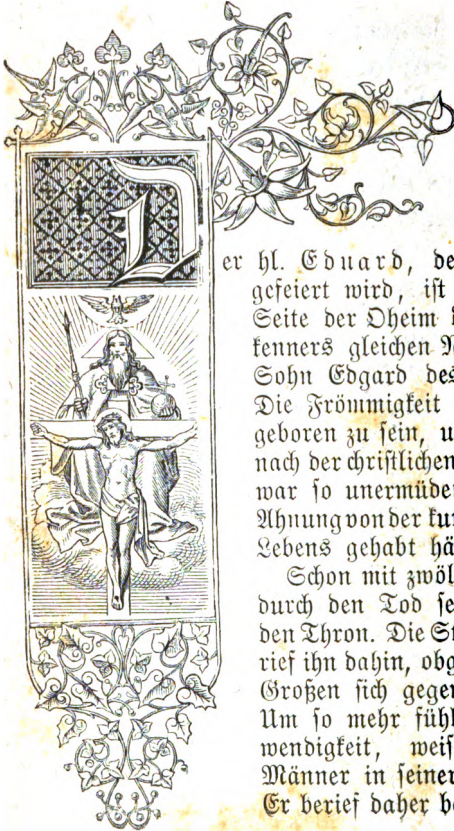 Der hl. Eduard, de
gefeiert wird, ist
Seite der Oheim
kenners gleichen
Sohn Edgard des
Die Frömmigkeit
geboren zu sein, u
nach der christlichen
war so unermüde
Ahnung von der kur
Lebens gehabt hä
Schon mit zwöl
durch den Tod se
den Thron. Die St
rief ihn dahin, obg
Großen sich gege
Um so mehr fühl
wendigkeit, weis
Männer in seiner
Er berief daher b